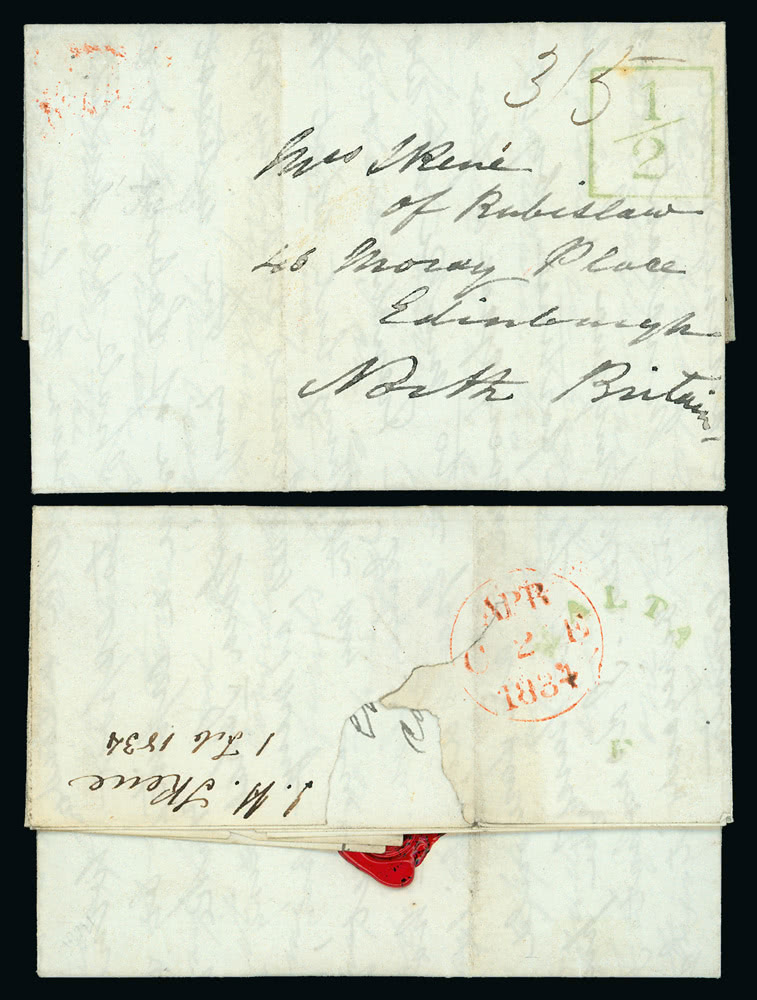 3/5
1/2
Mrs Skene
of Rubislaw
46 Moray Place
Edinburgh
North Britain
APR
C 2 E
1834
ALTA
F
J. H. Skene
1 Feb 1834